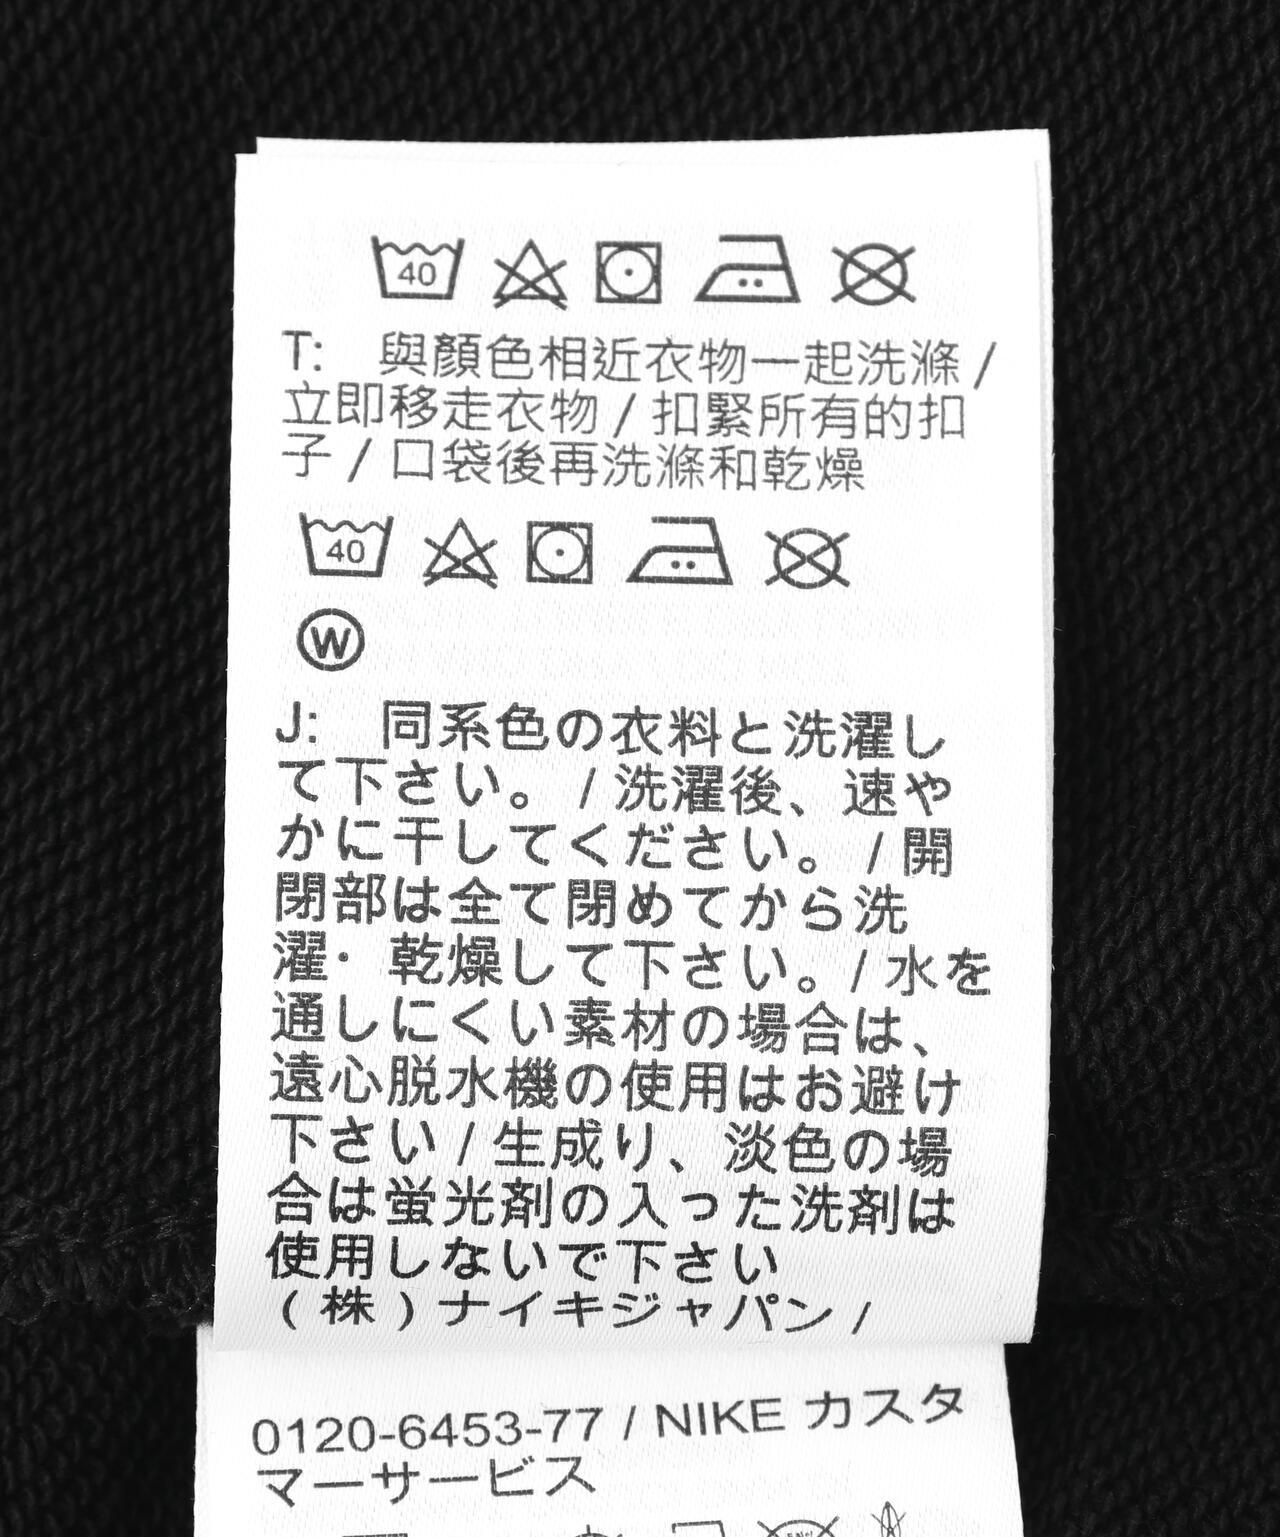 40
T: 與顏色相近衣物一起洗滌 /
立即移走衣物 / 扣緊所有的扣
子 / 口袋後再洗滌和乾燥
40
W
J: 同系色の衣料と洗濯し
て下さい。 / 洗濯後、速や
かに干してください。 / 開
閉部は全て閉めてから洗
濯・乾燥して下さい。 / 水を
通しにくい素材の場合は、
遠心脱水機の使用はお避け
下さい / 生成り、淡色の場
合は蛍光剤の入った洗剤は
使用しないで下さい
(株)ナイキジャパン /
0120-6453-77 / NIKE カスタ
マーサービス